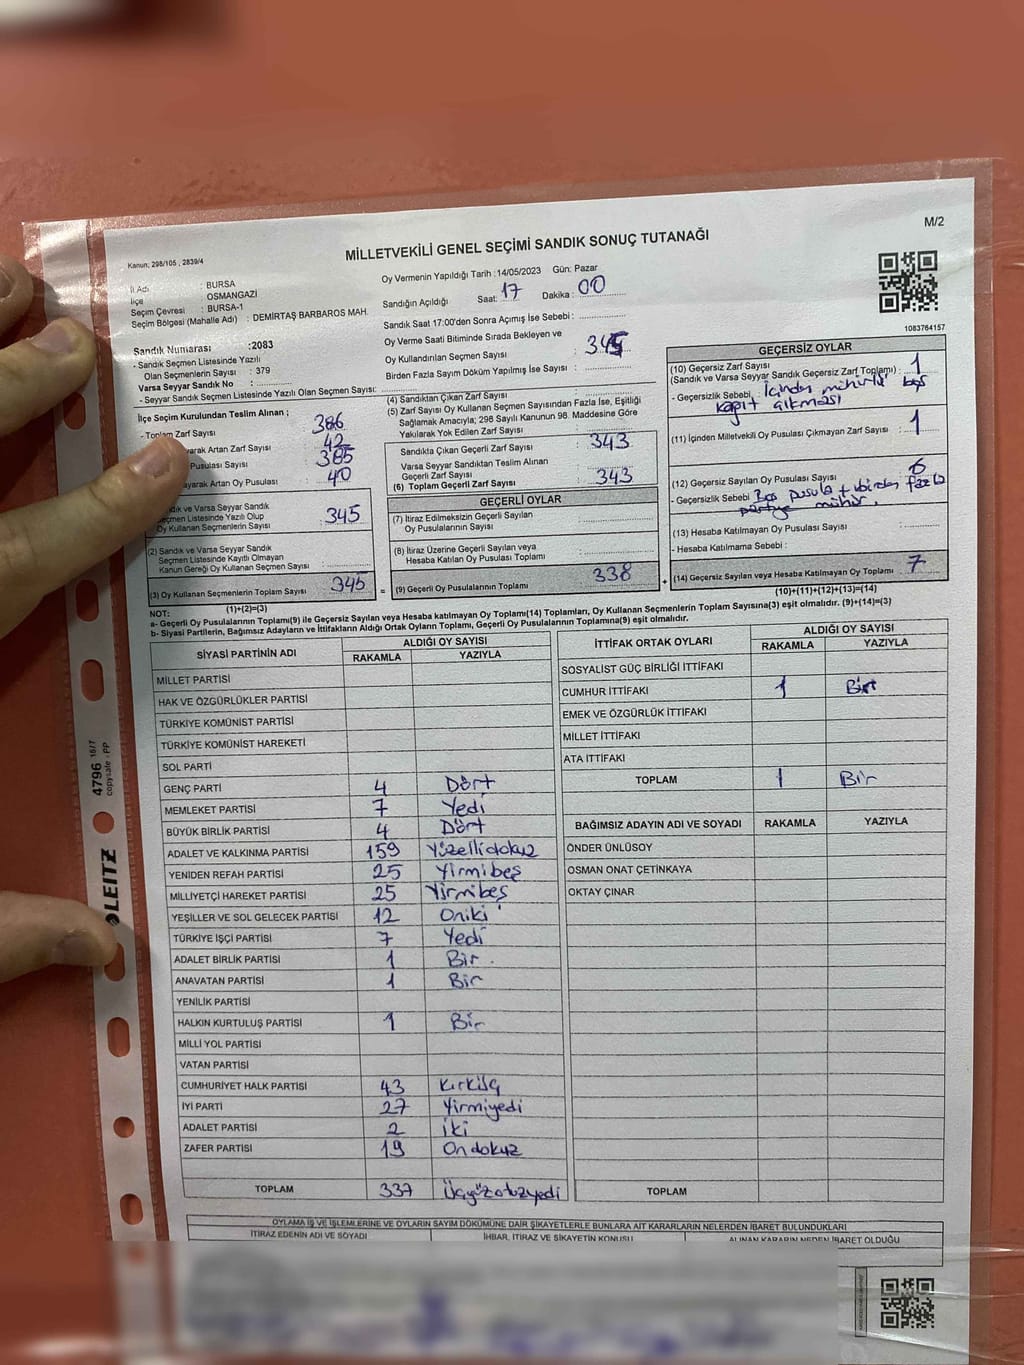 M/2
MİLLETVEKİLİ GENEL SEÇİMİ SANDIK SONUÇ TUTANAĞI
Kanun; 298/105 , 2839/4
İl Adı : BURSA
İlçe : OSMANGAZİ
Seçim Çevresi : BURSA-1
Seçim Bölgesi (Mahalle Adı) : DEMİRTAŞ BARBAROS MAH.
Oy Vermenin Yapıldığı Tarih :14/05/2023 Gün: Pazar
Sandığın Açıldığı Saat: 17 Dakika : 00
Sandık Saat 17:00'den Sonra Açımış İse Sebebi :
Oy Verme Saati Bitiminde Sırada Bekleyen ve
Oy Kullandırılan Seçmen Sayısı : 345
Birden Fazla Sayım Döküm Yapılmış İse Sayısı :
1083764157
Sandık Numarası :2083
- Sandık Seçmen Listesinde Yazılı
Olan Seçmenlerin Sayısı : 379
Varsa Seyyar Sandık No :
- Seyyar Sandık Seçmen Listesinde Yazılı Olan Seçmen Sayısı:
İlçe Seçim Kurulundan Teslim Alınan ;
- Toplam Zarf Sayısı 386
Artan Zarf Sayısı 42
Pusulası Sayısı 385
Artan Oy Pusulası : 40
ve Varsa Seyyar Sandık
Seçmen Listesinde Yazılı Olup
Oy Kullanan Seçmenlerin Sayısı : 345
(2) Sandık ve Varsa Seyyar Sandık
Seçmen Listesinde Kayıtlı Olmayan
Kanun Gereği Oy Kullanan Seçmen Sayısı :
(3) Oy Kullanan Seçmenlerin Toplam Sayısı : 345
(1)+(2)=(3)
(4) Sandıktan Çıkan Zarf Sayısı :
(5) Zarf Sayısı Oy Kullanan Seçmen Sayısından Fazla İse, Eşitliği
Sağlamak Amacıyla; 298 Sayılı Kanunun 98. Maddesine Göre
Yakılarak Yok Edilen Zarf Sayısı :
Sandıkta Çıkan Geçerli Zarf Sayısı : 343
Varsa Seyyar Sandıktan Teslim Alınan
Geçerli Zarf Sayısı :
(6) Toplam Geçerli Zarf Sayısı : 343
GEÇERLİ OYLAR
(7) İtiraz Edilmeksizin Geçerli Sayılan
Oy Pusulalarının Sayısı :
(8) İtiraz Üzerine Geçerli Sayılan veya
Hesaba Katılan Oy Pusulası Toplamı :
= (9) Geçerli Oy Pusulalarının Toplamı : 338 +
GEÇERSİZ OYLAR
(10) Geçersiz Zarf Sayısı
(Sandık ve Varsa Seyyar Sandık Geçersiz Zarf Toplamı) : 1
- Geçersizlik Sebebi, İçinden mühürlü boş
kağıt çıkması
(11) İçinden Milletvekili Oy Pusulası Çıkmayan Zarf Sayısı : 1
(12) Geçersiz Sayılan Oy Pusulası Sayısı : 6
- Geçersizlik Sebebi Boş pusula + birden fazla
partiye mühür.
(13) Hesaba Katılmayan Oy Pusulası Sayısı :
- Hesaba Katılmama Sebebi :
(14) Geçersiz Sayılan veya Hesaba Katılmayan Oy Toplamı : 7
(10)+(11)+(12)+(13)=(14)
NOT:
a- Geçerli Oy Pusulalarının Toplamı(9) ile Geçersiz Sayılan veya Hesaba katılmayan Oy Toplamı(14) Toplamları, Oy Kullanan Seçmenlerin Toplam Sayısına(3) eşit olmalıdır. (9)+(14)=(3)
b- Siyasi Partilerin, Bağımsız Adayların ve İttifakların Aldığı Ortak Oyların Toplamı, Geçerli Oy Pusulalarının Toplamına(9) eşit olmalıdır.
SİYASİ PARTİNİN ADI ALDIĞI OY SAYISI
RAKAMLA YAZIYLA
MİLLET PARTİSİ
HAK VE ÖZGÜRLÜKLER PARTİSİ
TÜRKİYE KOMÜNİST PARTİSİ
TÜRKİYE KOMÜNİST HAREKETİ
SOL PARTİ
GENÇ PARTİ 4 Dört
MEMLEKET PARTİSİ 7 Yedi
BÜYÜK BİRLİK PARTİSİ 4 Dört
ADALET VE KALKINMA PARTİSİ 159 Yüzellidokuz
YENİDEN REFAH PARTİSİ 25 Yirmibeş
MİLLİYETÇİ HAREKET PARTİSİ 25 Yirmibeş
YEŞİLLER VE SOL GELECEK PARTİSİ 12 Oniki
TÜRKİYE İŞÇİ PARTİSİ 7 Yedi
ADALET BİRLİK PARTİSİ 1 Bir.
ANAVATAN PARTİSİ 1 Bir
YENİLİK PARTİSİ
HALKIN KURTULUŞ PARTİSİ 1 Bir
MİLLİ YOL PARTİSİ
VATAN PARTİSİ
CUMHURİYET HALK PARTİSİ 43 Kırküç
İYİ PARTİ 27 Yirmiyedi
ADALET PARTİSİ 2 İki
ZAFER PARTİSİ 19 Ondokuz
TOPLAM 337 Üçyüzotuzyedi
İTTİFAK ORTAK OYLARI ALDIĞI OY SAYISI
RAKAMLA YAZIYLA
SOSYALIST GÜÇ BİRLİĞİ İTTİFAKI
CUMHUR İTTİFAKI 1 Bir
EMEK VE ÖZGÜRLÜK İTTİFAKI
MİLLET İTTİFAKI
ATA İTTİFAKI
TOPLAM 1 Bir
BAĞIMSIZ ADAYIN ADI VE SOYADI RAKAMLA YAZIYLA
ÖNDER ÜNLÜSOY
OSMAN ONAT ÇETİNKAYA
OKTAY ÇINAR
TOPLAM
OYLAMA İŞ VE İŞLEMLERİNE VE OYLARIN SAYIM DÖKÜMÜNE DAİR ŞİKAYETLERLE BUNLARA AİT KARARLARIN NELERDEN İBARET BULUNDUKLARI
İTİRAZ EDENİN ADI VE SOYADI İHBAR, İTİRAZ VE ŞİKAYETİN KONUSU ALINAN KARARIN NEDEN İBARET OLDUĞU
LEITZ 4796 copysafe · PP